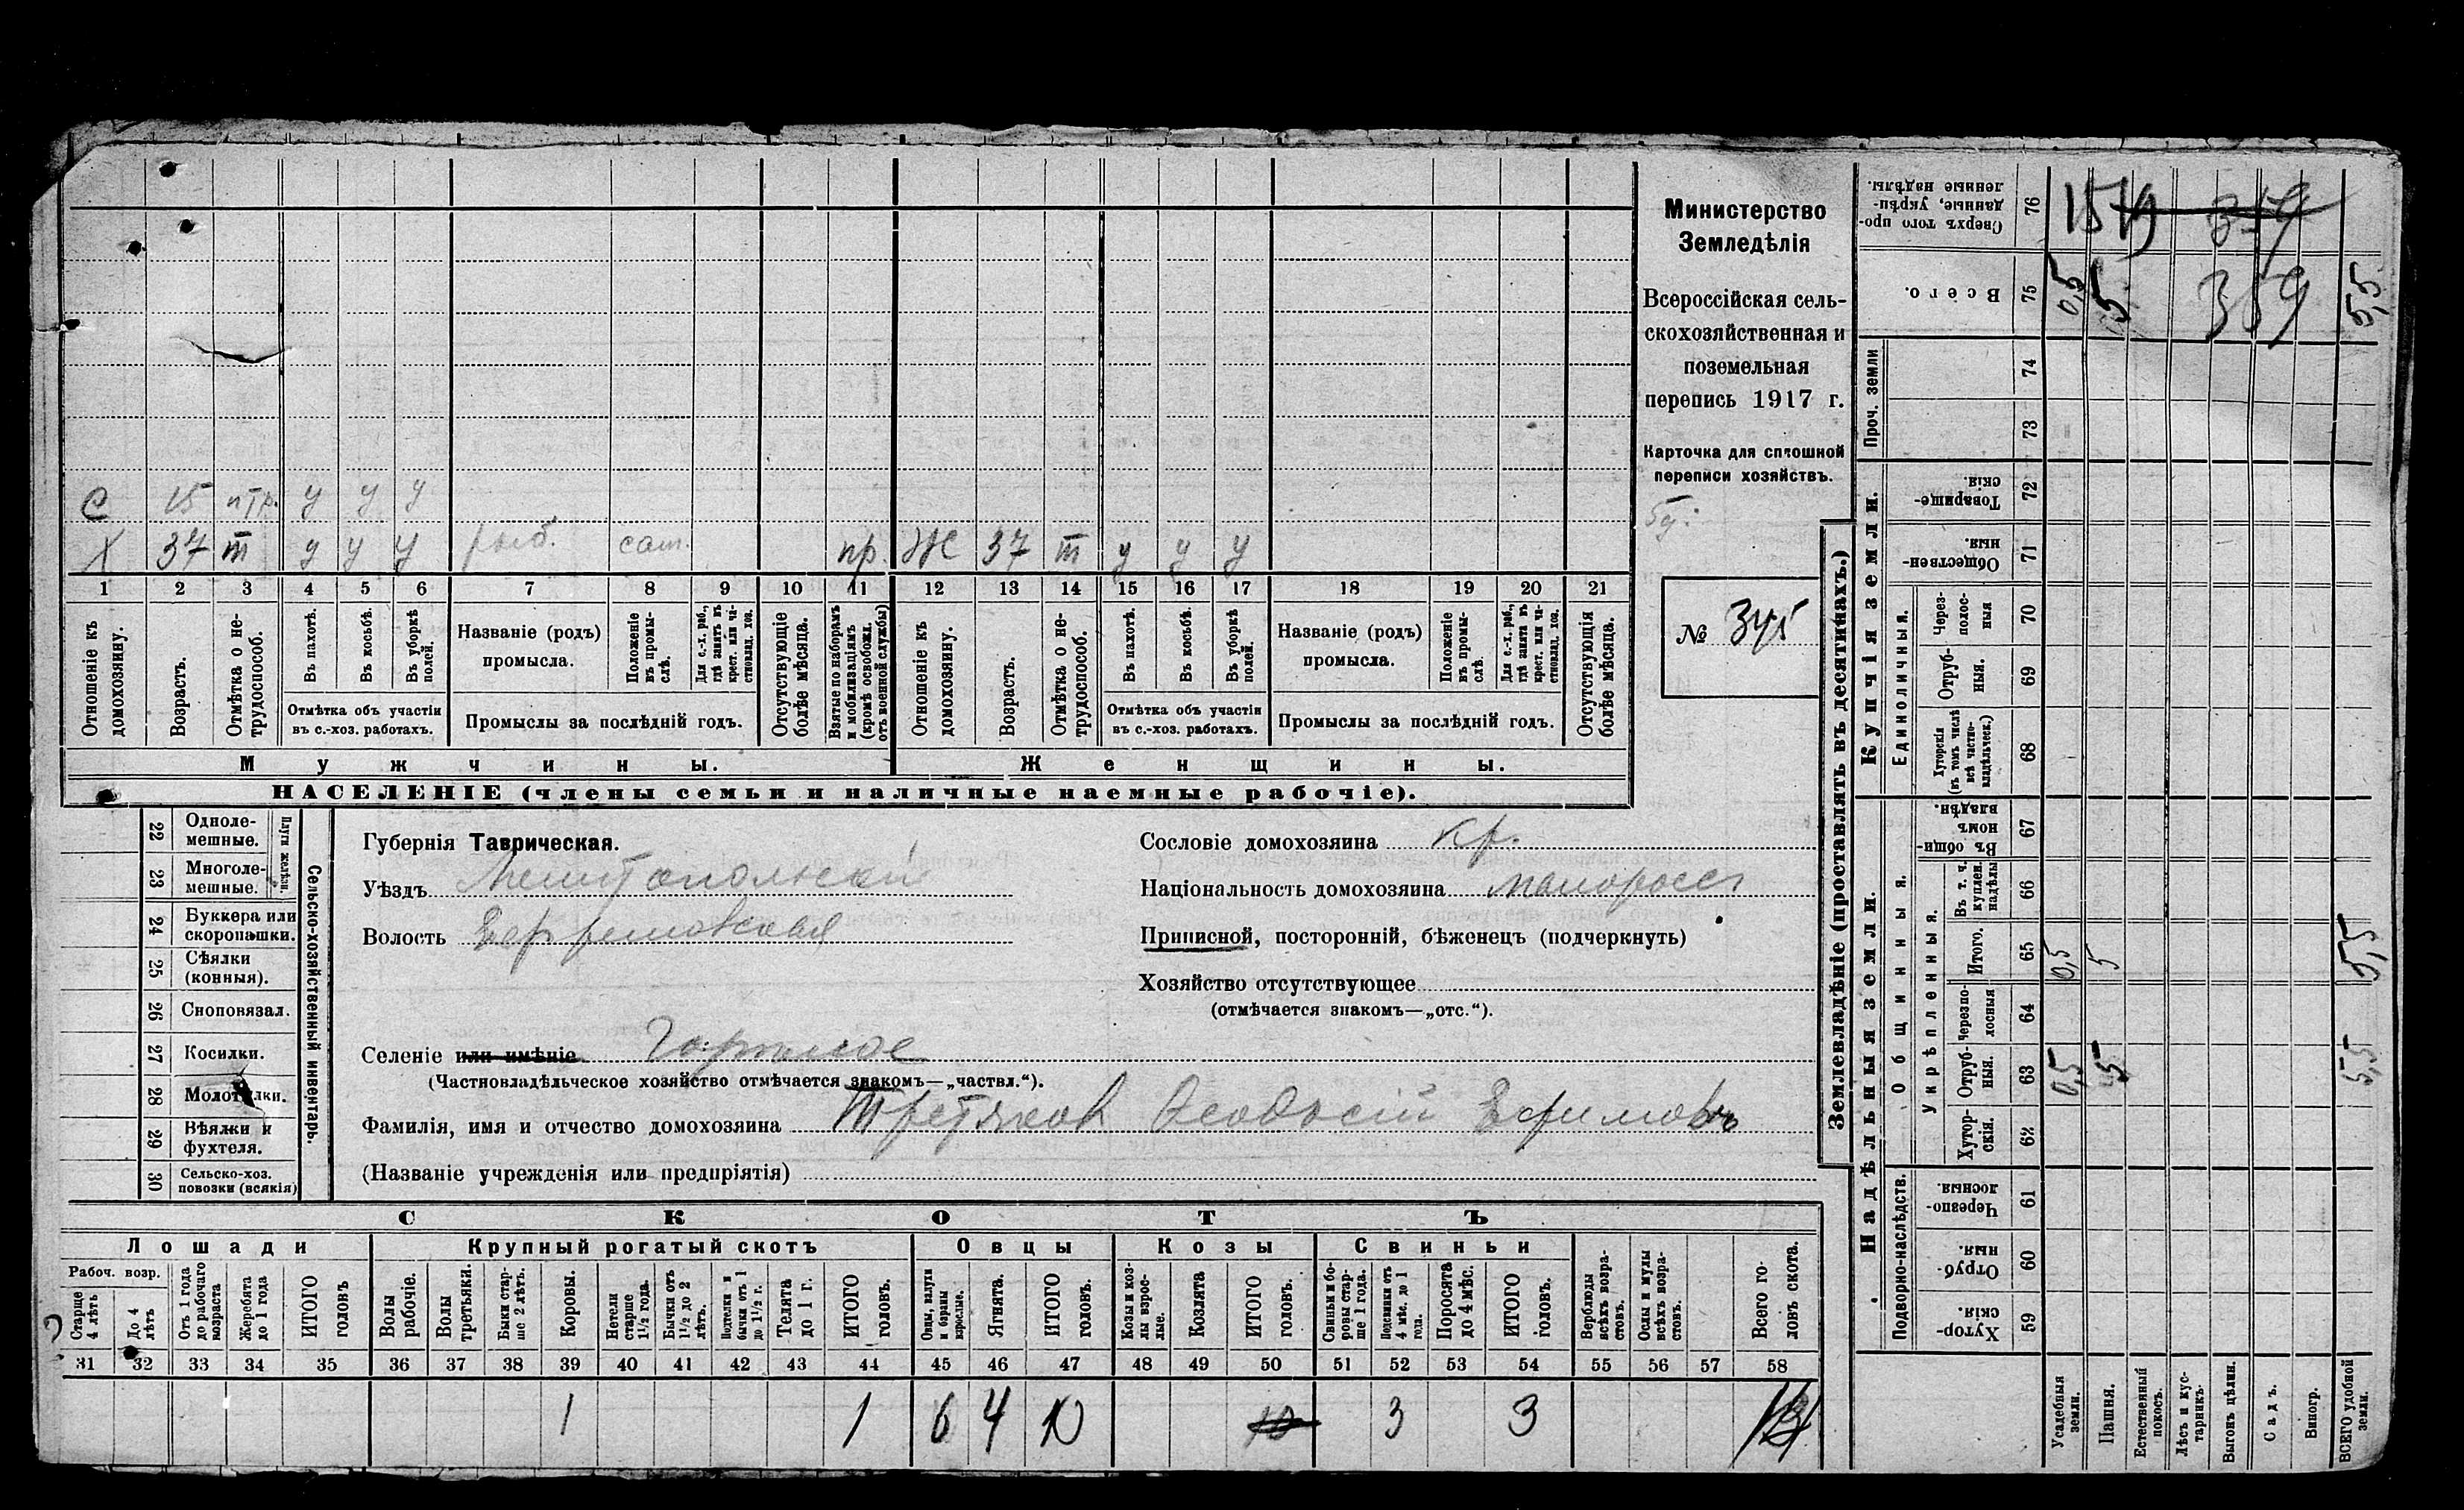 С 15 птр. у у у
Х 37 т у у у рыб. сам. пр. Ж 37 т у у у
1 2 3 4 5 6 7 8 9 10 11 12 13 14 15 16 17 18 19 20 21
Отношеніе къ домохозяину.
Возрастъ.
Отмѣтка о не-трудоспособ.
Въ пахотѣ.
Въ косьбѣ.
Въ уборкѣ полей.
Отмѣтка объ участіи
въ с.-хоз. работахъ.
Названіе (родъ)
промысла.
Положеніе въ промы-слѣ.
Для с.-х. раб., гдѣ занятъ въ крест. или ча-стновлад. хоз.
Промыслы за послѣдній годъ.
Отсутствующіе болѣе мѣсяца.
Взятые по наборамъ и мобилизаціямъ (кромѣ освобожд. отъ военной службы)
Отношеніе къ домохозяину.
Возрастъ.
Отмѣтка о не-трудоспособ.
Въ пахотѣ.
Въ косьбѣ.
Въ уборкѣ полей.
Отмѣтка объ участіи
въ с.-хоз. работахъ.
Названіе (родъ)
промысла.
Положеніе въ промы-слѣ.
Для с.-х. раб., гдѣ занята въ крест. или ча-стновлад. хоз.
Промыслы за послѣдній годъ.
Отсутствующія болѣе мѣсяца.
Мужчины.
Женщины.
НАСЕЛЕНІЕ (члены семьи и наличные наемные рабочіе).
Министерство
Земледѣлія
Всероссійская сель-
скохозяйственная и
поземельная
перепись 1917 г.
Карточка для сплошной
переписи хозяйствъ.
№ 345
22 Одноле-мешные.
23 Многоле-мешные.
Плуги желѣзн.
24 Буккера или скоропашки.
25 Сѣялки (конныя).
26 Сноповязал.
27 Косилки.
28 Молотилки.
29 Вѣялки и фухтеля.
30 Сельско-хоз. повозки (всякія)
Сельско-хозяйственный инвентарь.
Губернія Таврическая.
Уѣздъ Мелитопольскій
Волость Ефремовская
Селеніе или имѣніе Горькое
(Частновладѣльческое хозяйство отмѣчается знакомъ—„частвл.“).
Фамилія, имя и отчество домохозяина Третяков Феодосій Ефимовъ
(Названіе учрежденія или предпріятія)
Сословіе домохозяина кр.
Національность домохозяина малоросс
Приписной, посторонній, бѣженецъ (подчеркнуть)
Хозяйство отсутствующее
(отмѣчается знакомъ—„отс.“).
СКОТЪ
Лошади
Крупный рогатый скотъ
Овцы
Козы
Свиньи
Рабоч. возр.
Старше 4 лѣтъ
До 4 лѣтъ
Отъ 1 года до рабочаго возраста
Жеребята до 1 года
ИТОГО головъ
Волы рабочіе.
Волы третьяки.
Быки стар-ше 2 лѣтъ.
Коровы.
Нетели старше 1½ года.
Бычки отъ 1½ до 2 лѣтъ.
Подтелки и бычки отъ 1 до 1½ г.
Телята до 1 г.
ИТОГО головъ.
Овцы, валухи и бараны взрослые.
Ягнята.
ИТОГО головъ.
Козы и коз-лы взрос-лые.
Козлята
ИТОГО головъ.
Свиньи и бо-ровы стар-ше 1 года.
Подсвинки отъ 4 мѣс. до 1 года.
Поросята до 4 мѣс.
ИТОГО головъ.
Верблюды всѣхъ возра-стовъ.
Ослы и мулы всѣхъ возра-стовъ.
Всего го-ловъ скота.
31 32 33 34 35 36 37 38 39 40 41 42 43 44 45 46 47 48 49 50 51 52 53 54 55 56 57 58
1 1 6 4 10 10 3 3
Землевладѣніе (проставлять въ десятинахъ.)
Надѣльныя земли.
Купчія земли.
Проч. земли
Подворно-наслѣдств.
Общинныя.
Укрѣпленныя.
Единоличныя.
Сверхъ того про-данные, укрѣп-ленные надѣлы. 76
Всего. 75 0,5 5 359 5,5
74
73
Товарище-скія. 72
Обществен-ныя. 71
Через-полос-ныя 70
Отруб-ныя. 69
Хуторскія (въ томъ числѣ всѣ частно-владѣльческ.) 68
Въ общин-номъ владѣн. 67
Въ т. ч. куплен. надѣлы 66
Итого. 65 0,5 5 5,5
Черезпо-лосныя 64
Отруб-ныя. 63 0,5 5 5,5
Хутор-скія. 62
Черезпо-лосныя. 61
Отруб-ныя. 60
Хутор-скія. 59
Усадебныя земли.
Пашня.
Естественный покосъ.
Лѣсъ и кус-тарникъ.
Выгонъ цѣлин.
Садъ.
Виногр.
ВСЕГО удобной земли.